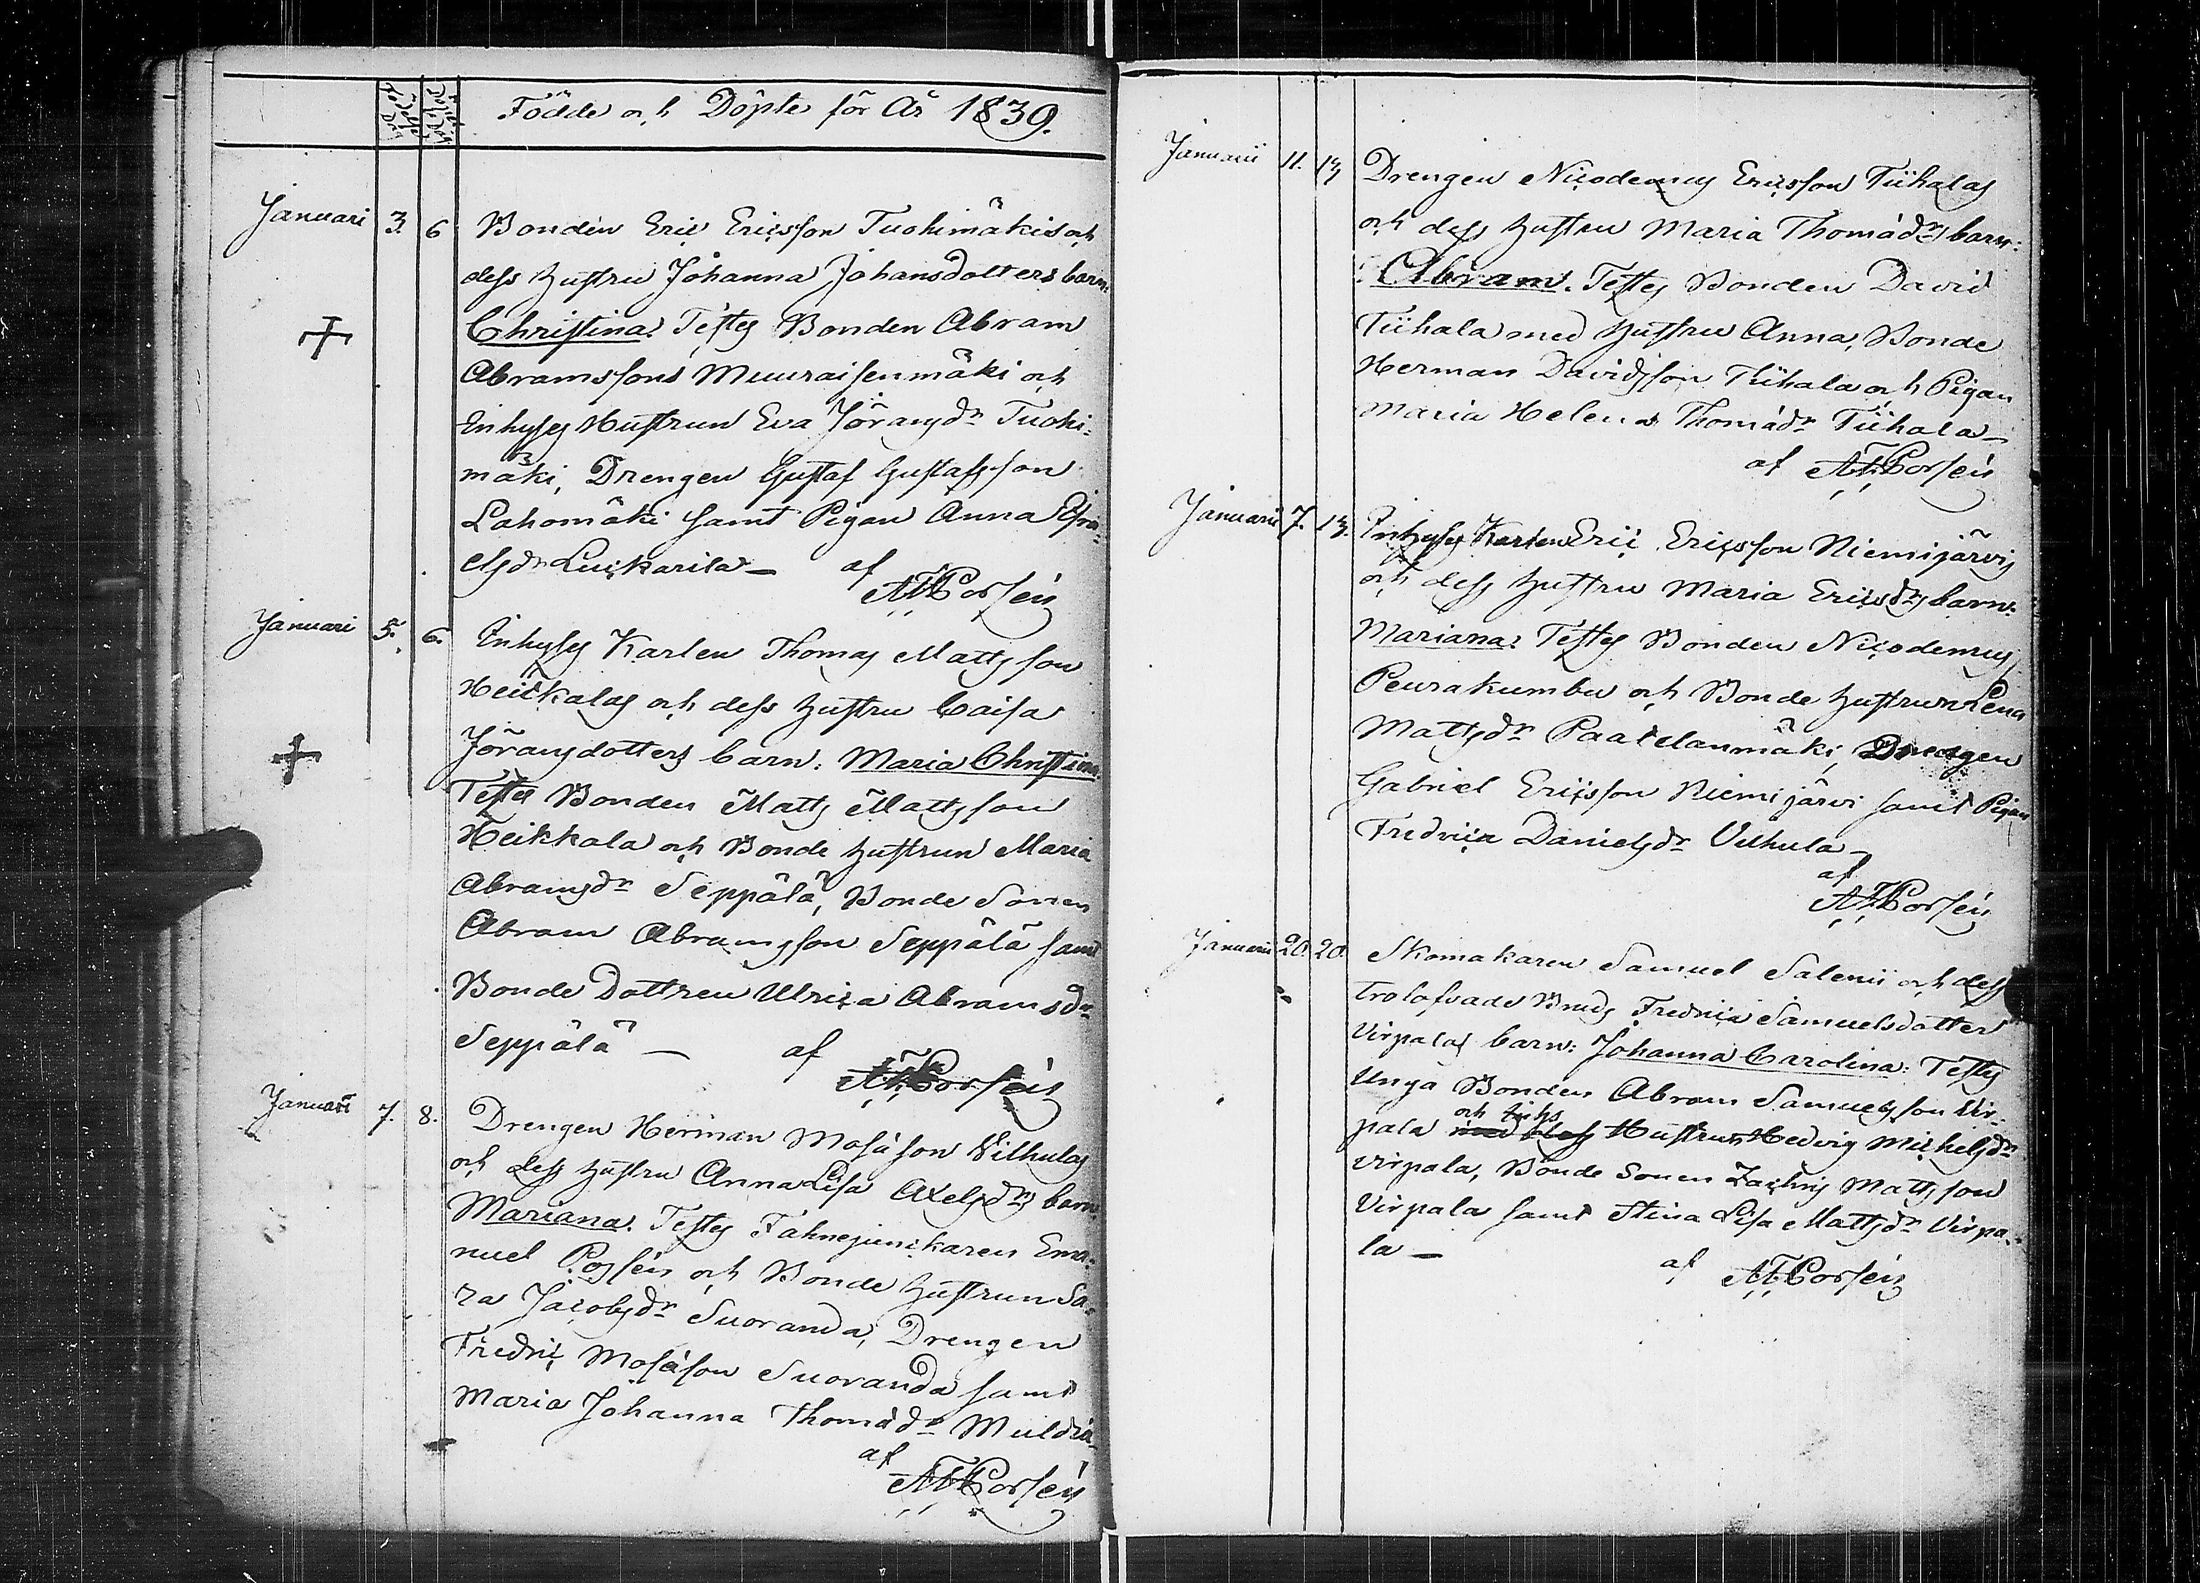 Födde och Döpte för År 1839.
Januari 3. 6 Bonden Eric Ericsson Tuohimäkis och
dess hustru Johanna Johansdotters barn:
Christina. Testes Bonden Abram
Abramssons Muuraisenmäki och
Inhyses Hustrun Eva Jöransdr Tuohi-
mäki, Drengen Gustaf Gustafsson
Lahomäki samt Pigan Anna Isra-
elsdr Luckarila — af
Januari 5. 6. Inhyses Karlen Thomas Mattsson
Heickalas och dess hustru Caisa
Jöransdotters barn: Maria Christina.
Testes Bonden Matts Mattsson
Heikkala och Bonde hustrun Maria
Abramsdr Seppälä, Bonde Sonen
Abram Abramsson Seppälä samt
Bonde Dottren Ulrica Abramsdr
Seppälä — af
Januari 7. 8. Drengen Herman Mosisson Vilhulas
och dess hustru Anna Lisa Axelsdrs barn:
Mariana. Testes Fahnejunkaren Ema-
nuel och Bonde hustrun Sa-
ra Jacobsdr Suoranda, Drengen
Fredric Mosisson Suoranda samt
Maria Johanna Thomædr Muldia
af
Januarii 11. 13 Drengen Nicodemus Ericsson Tiihalas
och dess hustru Maria Thomædrs barn:
Abram. Testes Bonden David
Tiihala med hustru Anna, Bonde
Herman Davidsson Tiihala och Pigan
Maria Helena Thomædr Tiihala —
af
Januarii 7. 13. Inhyses Karlen Eric Ericsson Niemijärvis
och dess hustru Maria Ericsdrs barn:
Mariana. Testes Bonden Nicodemus
Peurakumbu och Bonde hustrun Lena
Mattsdr Paatelanmäki, Drengen
Gabriel Ericsson Niemijärvi samt Pigan
Fredrica Danielsdr Vilhula —
af
Januarii 20. 20. Skomakaren Samuel Salenii och dess
trolofvade Bruds Fredrica Samuelsdotters
Virpalas barn: Johanna Carolina. Testes
Unga Bonden Abram Samuelsson Vir-
och Inhs
pala med dess Hustrun Hedvig Michelsdr
Virpala, Bonde Sonen Zachris Mattsson
Virpala samt Stina Lisa Mattsdr Virpa-
la — af